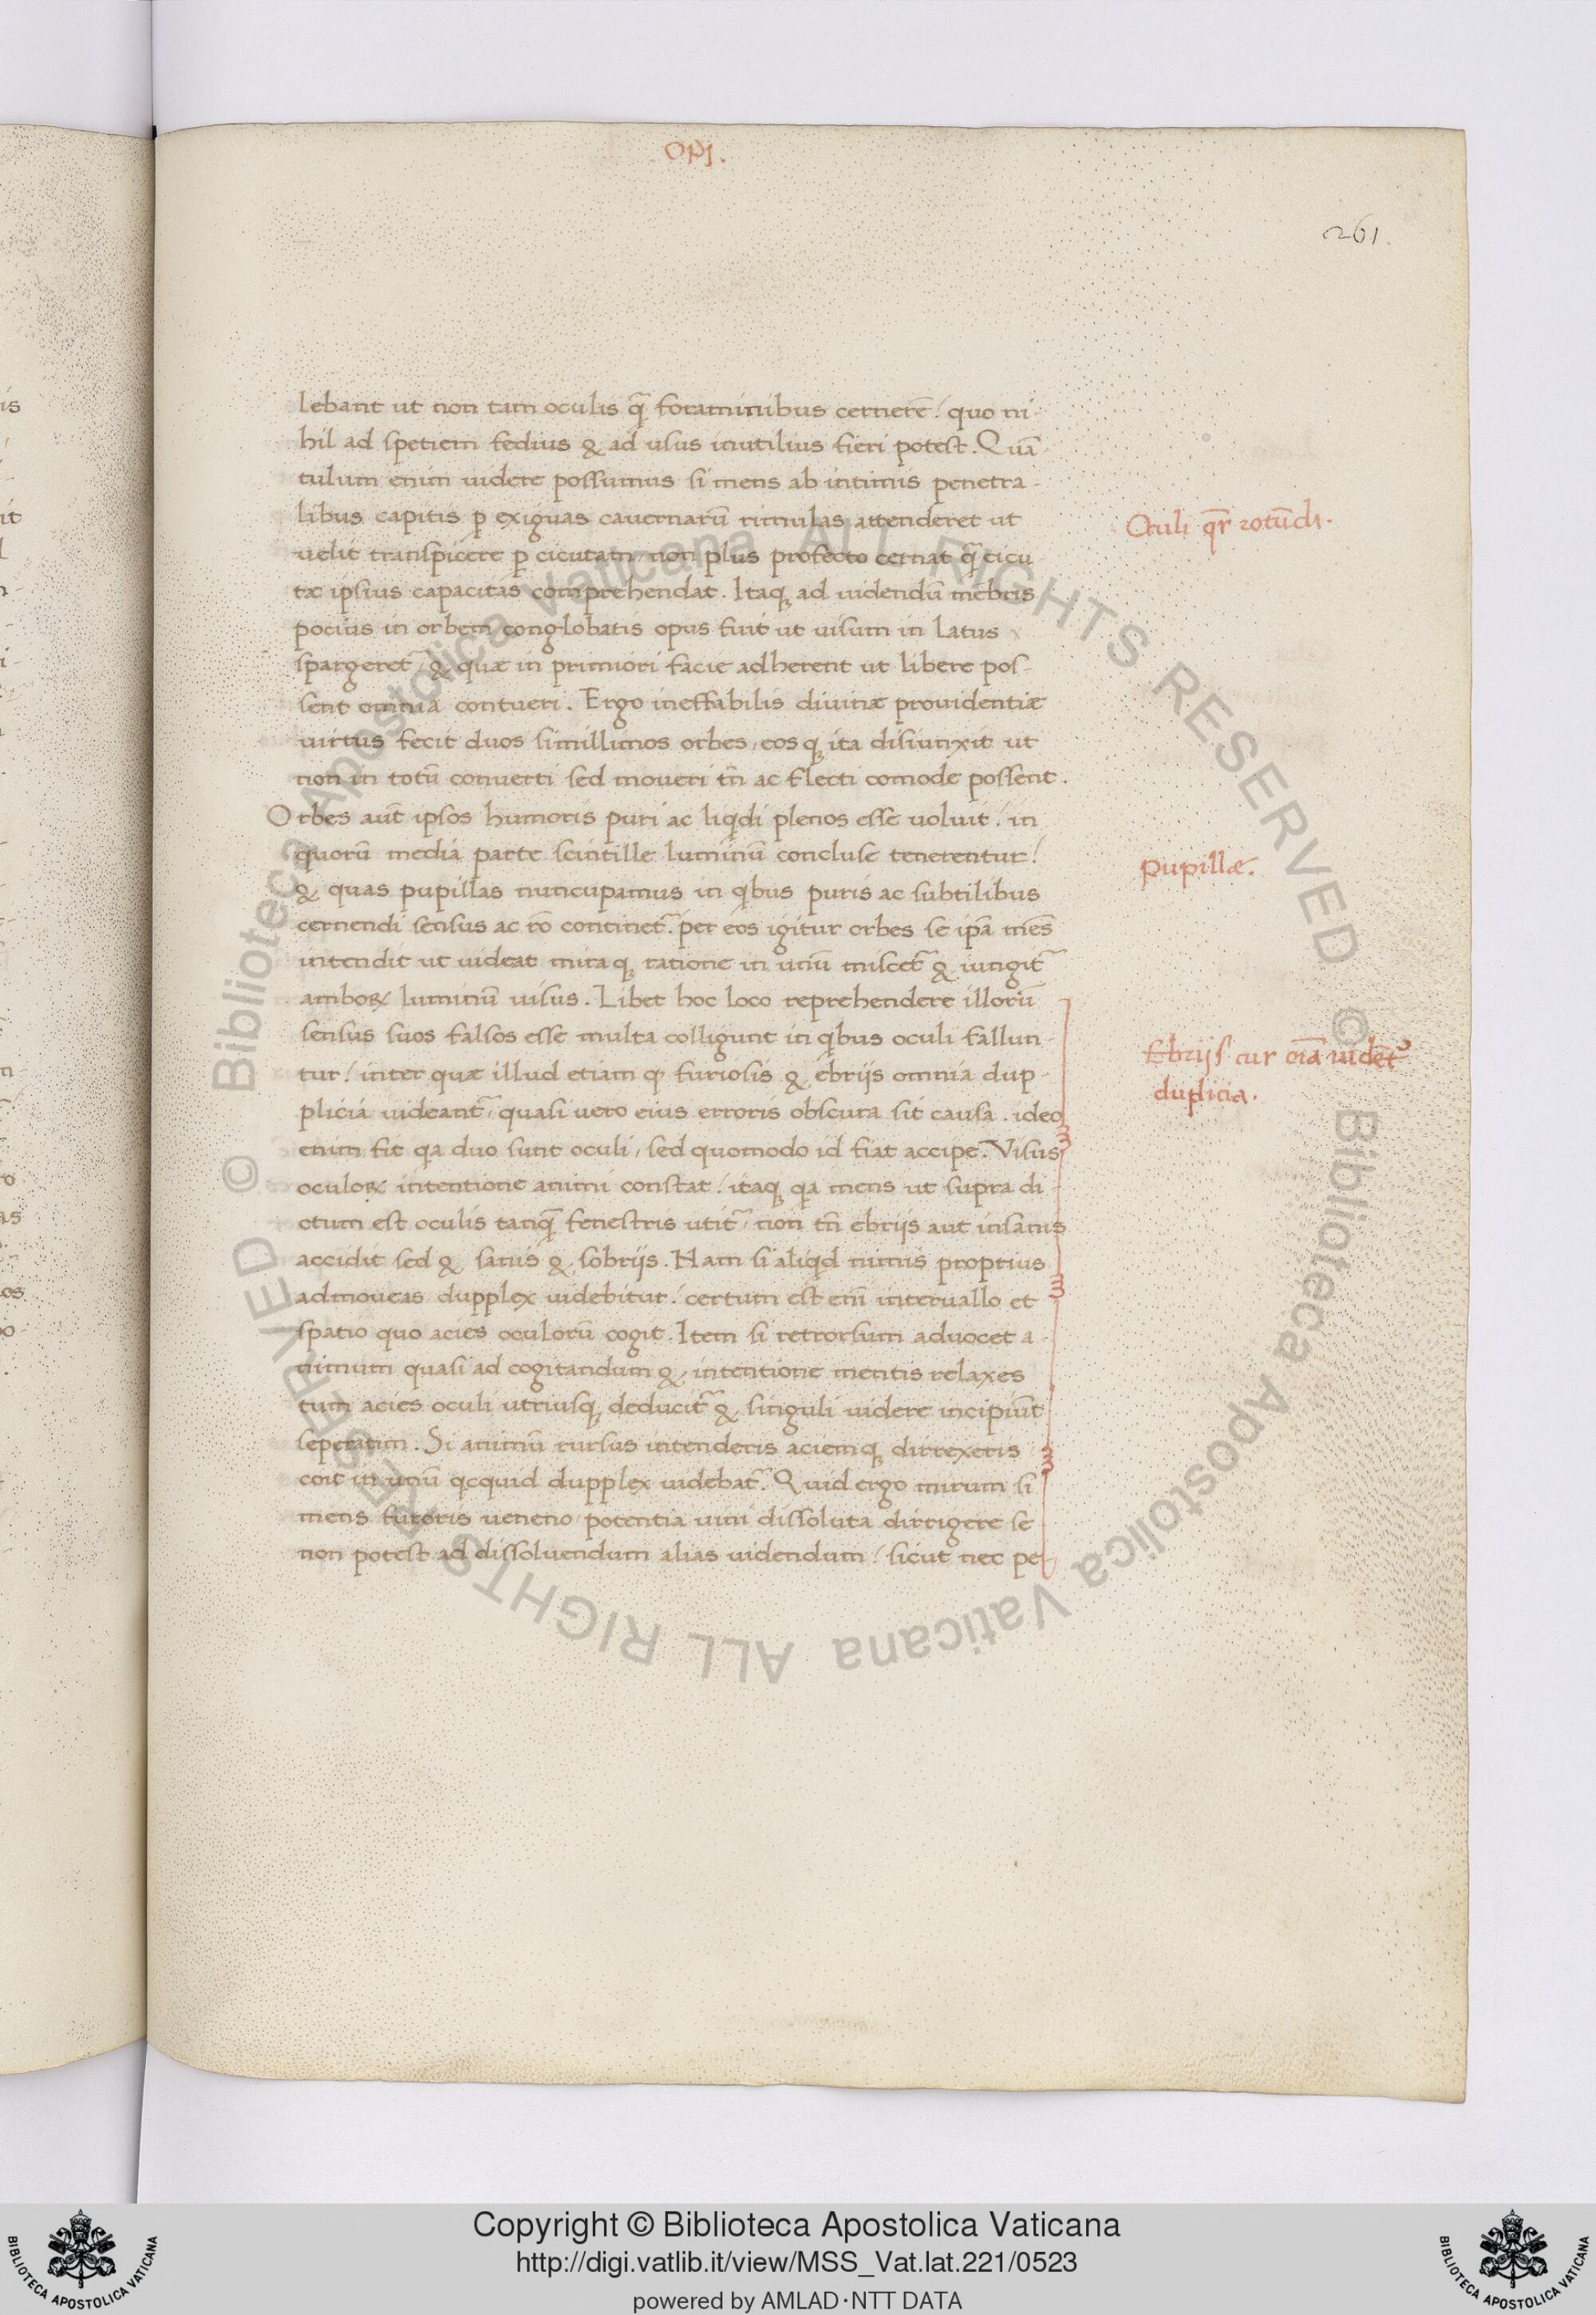 opi.
261.
lebant ut non tam oculis q̃ foraminibus cernerẽ / quo ni-
hil ad spetiem fedius & ad usus inutilius fieri potest. Quã-
tulum enim uidere possumus si mens ab intimis penetra-
libus capitis ꝑ exiguas cauernarũ rimulas attenderet ut
Oculi qr̃ rotũdi.
uelit transpicere ꝑ cicutam non plus profecto cernat q̃ cicu-
tæ ipsius capacitas comprehendat. Itaqꝫ ad uidendũ mẽbris
pocius in orbem conglobatis opus fuit ut uisum in latus
spargeret̃, & quæ in primori facie adherent ut libere pos-
sent omnia contueri. Ergo ineffabilis diuinæ prouidentiæ
uirtus fecit duos simillimos orbes, eos qꝫ ita disiunxit ut
non in totũ conuerti sed moueri tñ ac flecti comode possent.
Orbes aut̃ ipsos humoris puri ac liqdi plenos esse uoluit / in
quorũ media parte scintille luminũ concluse tenerentur /
pupillæ.
& quas pupillas nuncupamus in qbus puris ac subtilibus
cernendi sensus ac rõ continet̃. per eos igitur orbes se ipã mẽs
intendit ut uideat mira qꝫ ratione in unũ miscet̃ & iungit̃
amboꝝ luminũ uisus. Libet hoc loco reprehendere illorũ
sensus suos falsos esse multa colligunt in qbus oculi fallun-
Ebrijs cur oĩa uidẽt̃
tur / inter quæ illud etiam ꝙ furiosis & ebrijs omnia dup-
duplicia.
plicia uideant̃, quasi uero eius erroris obscura sit causa. ideo
enim fit qa duo sunt oculi, sed quomodo id fiat accipe. Visus
oculoꝝ intentione animi constat / itaqꝫ qa mens ut supra di-
ctum est oculis tanq̃ fenestris utit̃, non tñ ebrijs aut insanis
accidit sed & sanis & sobrijs. Nam si aliqd nimis proprius
admoueas dupplex uidebitur / certum est em̃ interuallo et
spatio quo acies oculorũ cogit. Item si retrorsum aduocet a-
nimum quasi ad cogitandum & intentione mentis relaxes
tum acies oculi utriusqꝫ deducit̃ & singuli uidere incipiũt
seperatim. Si animũ rursus intenderis aciemqꝫ dirrexeris
coit in unũ qcquid dupplex uidebat̃. Quid ergo mirum si
mens furoris ueneno potentia uini dissoluta dirrigere se
non potest ad dissoluendum alias uidendum / sicut nec pe-
© Biblioteca Apostolica Vaticana ALL RIGHTS RESERVED © Biblioteca Apostolica Vaticana ALL RIGHTS RESERVED
Copyright © Biblioteca Apostolica Vaticana
http://digi.vatlib.it/view/MSS_Vat.lat.221/0523
powered by AMLAD·NTT DATA
BIBLIOTECA APOSTOLICA VATICANA
BIBLIOTECA APOSTOLICA VATICANA